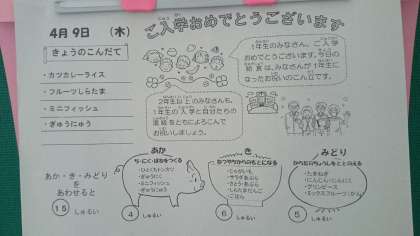 4月9日 (木)
ご入学おめでとうございます
きょうのこんだて
・カツカレーライス
・フルーツしらたま
・ミニフィッシュ
・ぎゅうにゅう
1年生のみなさん、ご入学
おめでとうございます。今日の
給食は、みなさんが1年生に
なったお祝いのこんだてです。
2年生以上のみなさんも、
1年生の入学と自分たちの
進級をともによろこんで
お祝いしましょう。
あか・き・みどり
を
あわせると
15 しゅるい
あか
ち・にく・ほねをつくる
・ひとくちトンカツ
・ぎゅうにく
・ミニフィッシュ
・ぎゅうにゅう
4 しゅるい
き
ねつやちからのもとになる
・じゃがいも
・サラダあぶら
・さとう・あぶら
・しらたまだんご
・ごはん
6 しゅるい
みどり
からだのちょうしをととのえる
・たまねぎ
・にんじん・にんにく
・グリンピース
・ミックスフルーツ(かん)
5 しゅるい